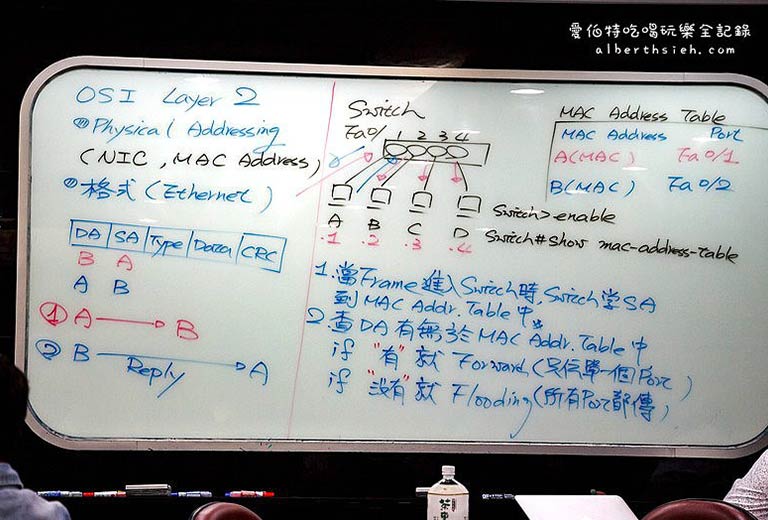 愛伯特吃喝玩樂全記錄
alberthsieh.com
OSI Layer 2
(1) Physical Addressing
(NIC, MAC Address)
(2) 格式 (Ethernet)
DA SA Type Data CRC
B A
A B
① A → B
② B → A
Reply
Switch
Fa0/ 1 2 3 4
A B C D
.1 .2 .3 .4
MAC Address Table
MAC Address Port
A(MAC) Fa0/1
B(MAC) Fa0/2
Switch>enable
Switch#show mac-address-table
1.當Frame進入Switch時,Switch学SA
到MAC Addr. Table中
2.查DA有無於MAC Addr. Table中
if "有" 就 Forward (只信單一個Port)
if "没有" 就 Flooding (所有Port都傳)
茶